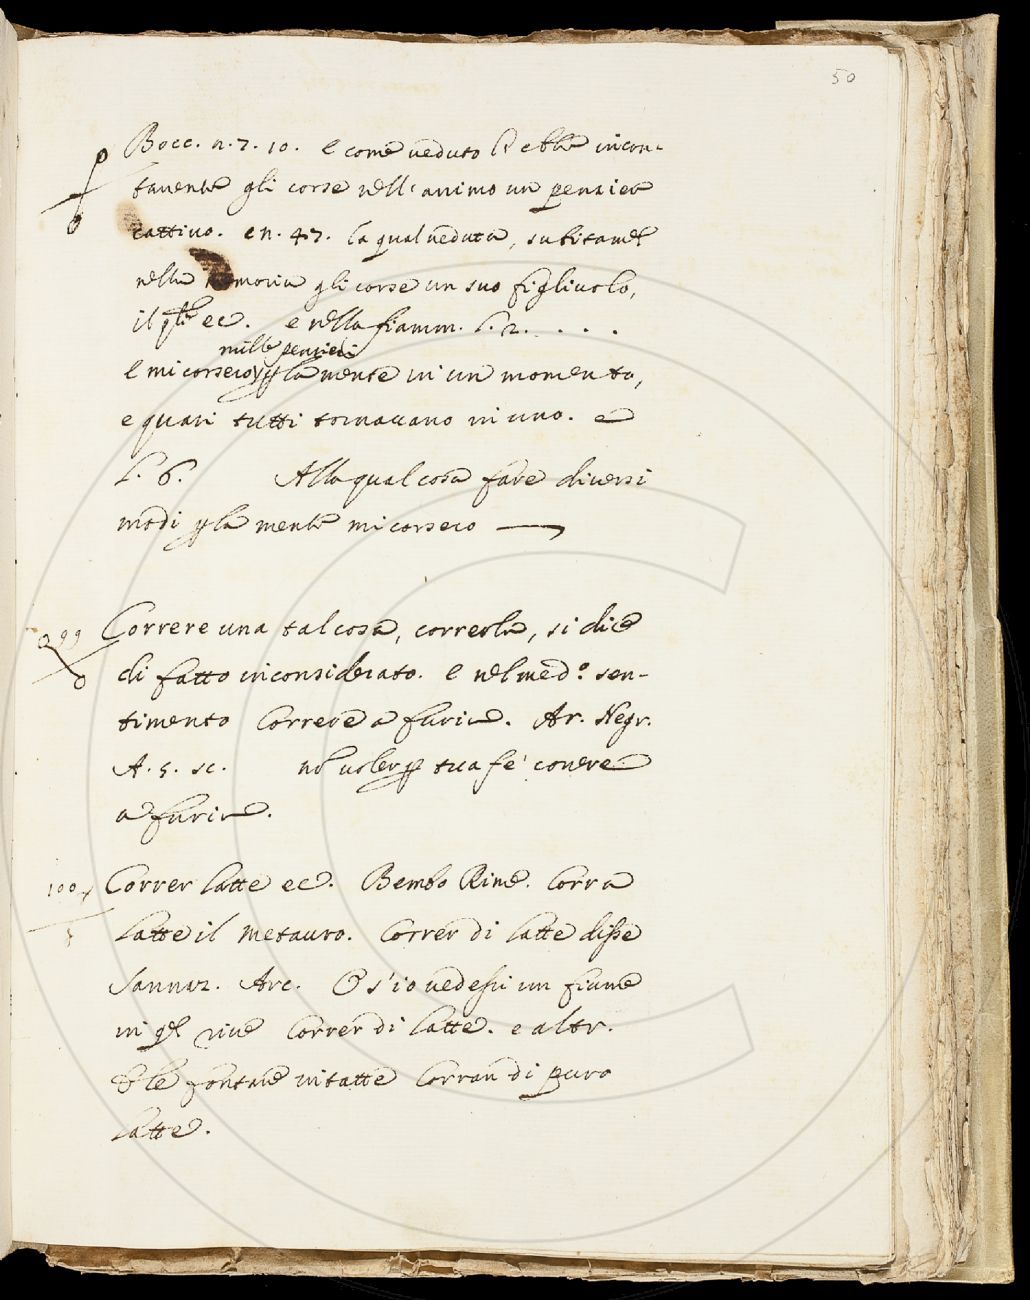 50
Bocc. n. 7. 10. e come veduto l'ebbe incon-
tanente gli corse nell'animo un pensier
cattivo. e n. 47. la qual veduta, subitamẽ
nella memoria gli corse un suo figliuolo,
il ql̃e ec. e nella fiamm. l. 2. . . . .
mille pensieri
E mi corsero p la mente in un momento,
e quasi tutti tornavano in uno. e
l. 6. Alla qual cosa fare diversi
modi p la mente mi corsero —
99 Correre una tal cosa, correrla, si dice
di fatto inconsiderato. e nel med.º sen-
timento Correre a furia. Ar. Negr.
A. 5. sc. nõ voler p tua fe' correre
a furia.
100 Correr latte ec. Bembo Rime. Corra
latte il Metauro. Correr di latte disse
Sannaz. Arc. O s'io vedessi un fiume
in q̃ste rive Correr di latte. e altr.
E le fontane intatte Corran di puro
latte.